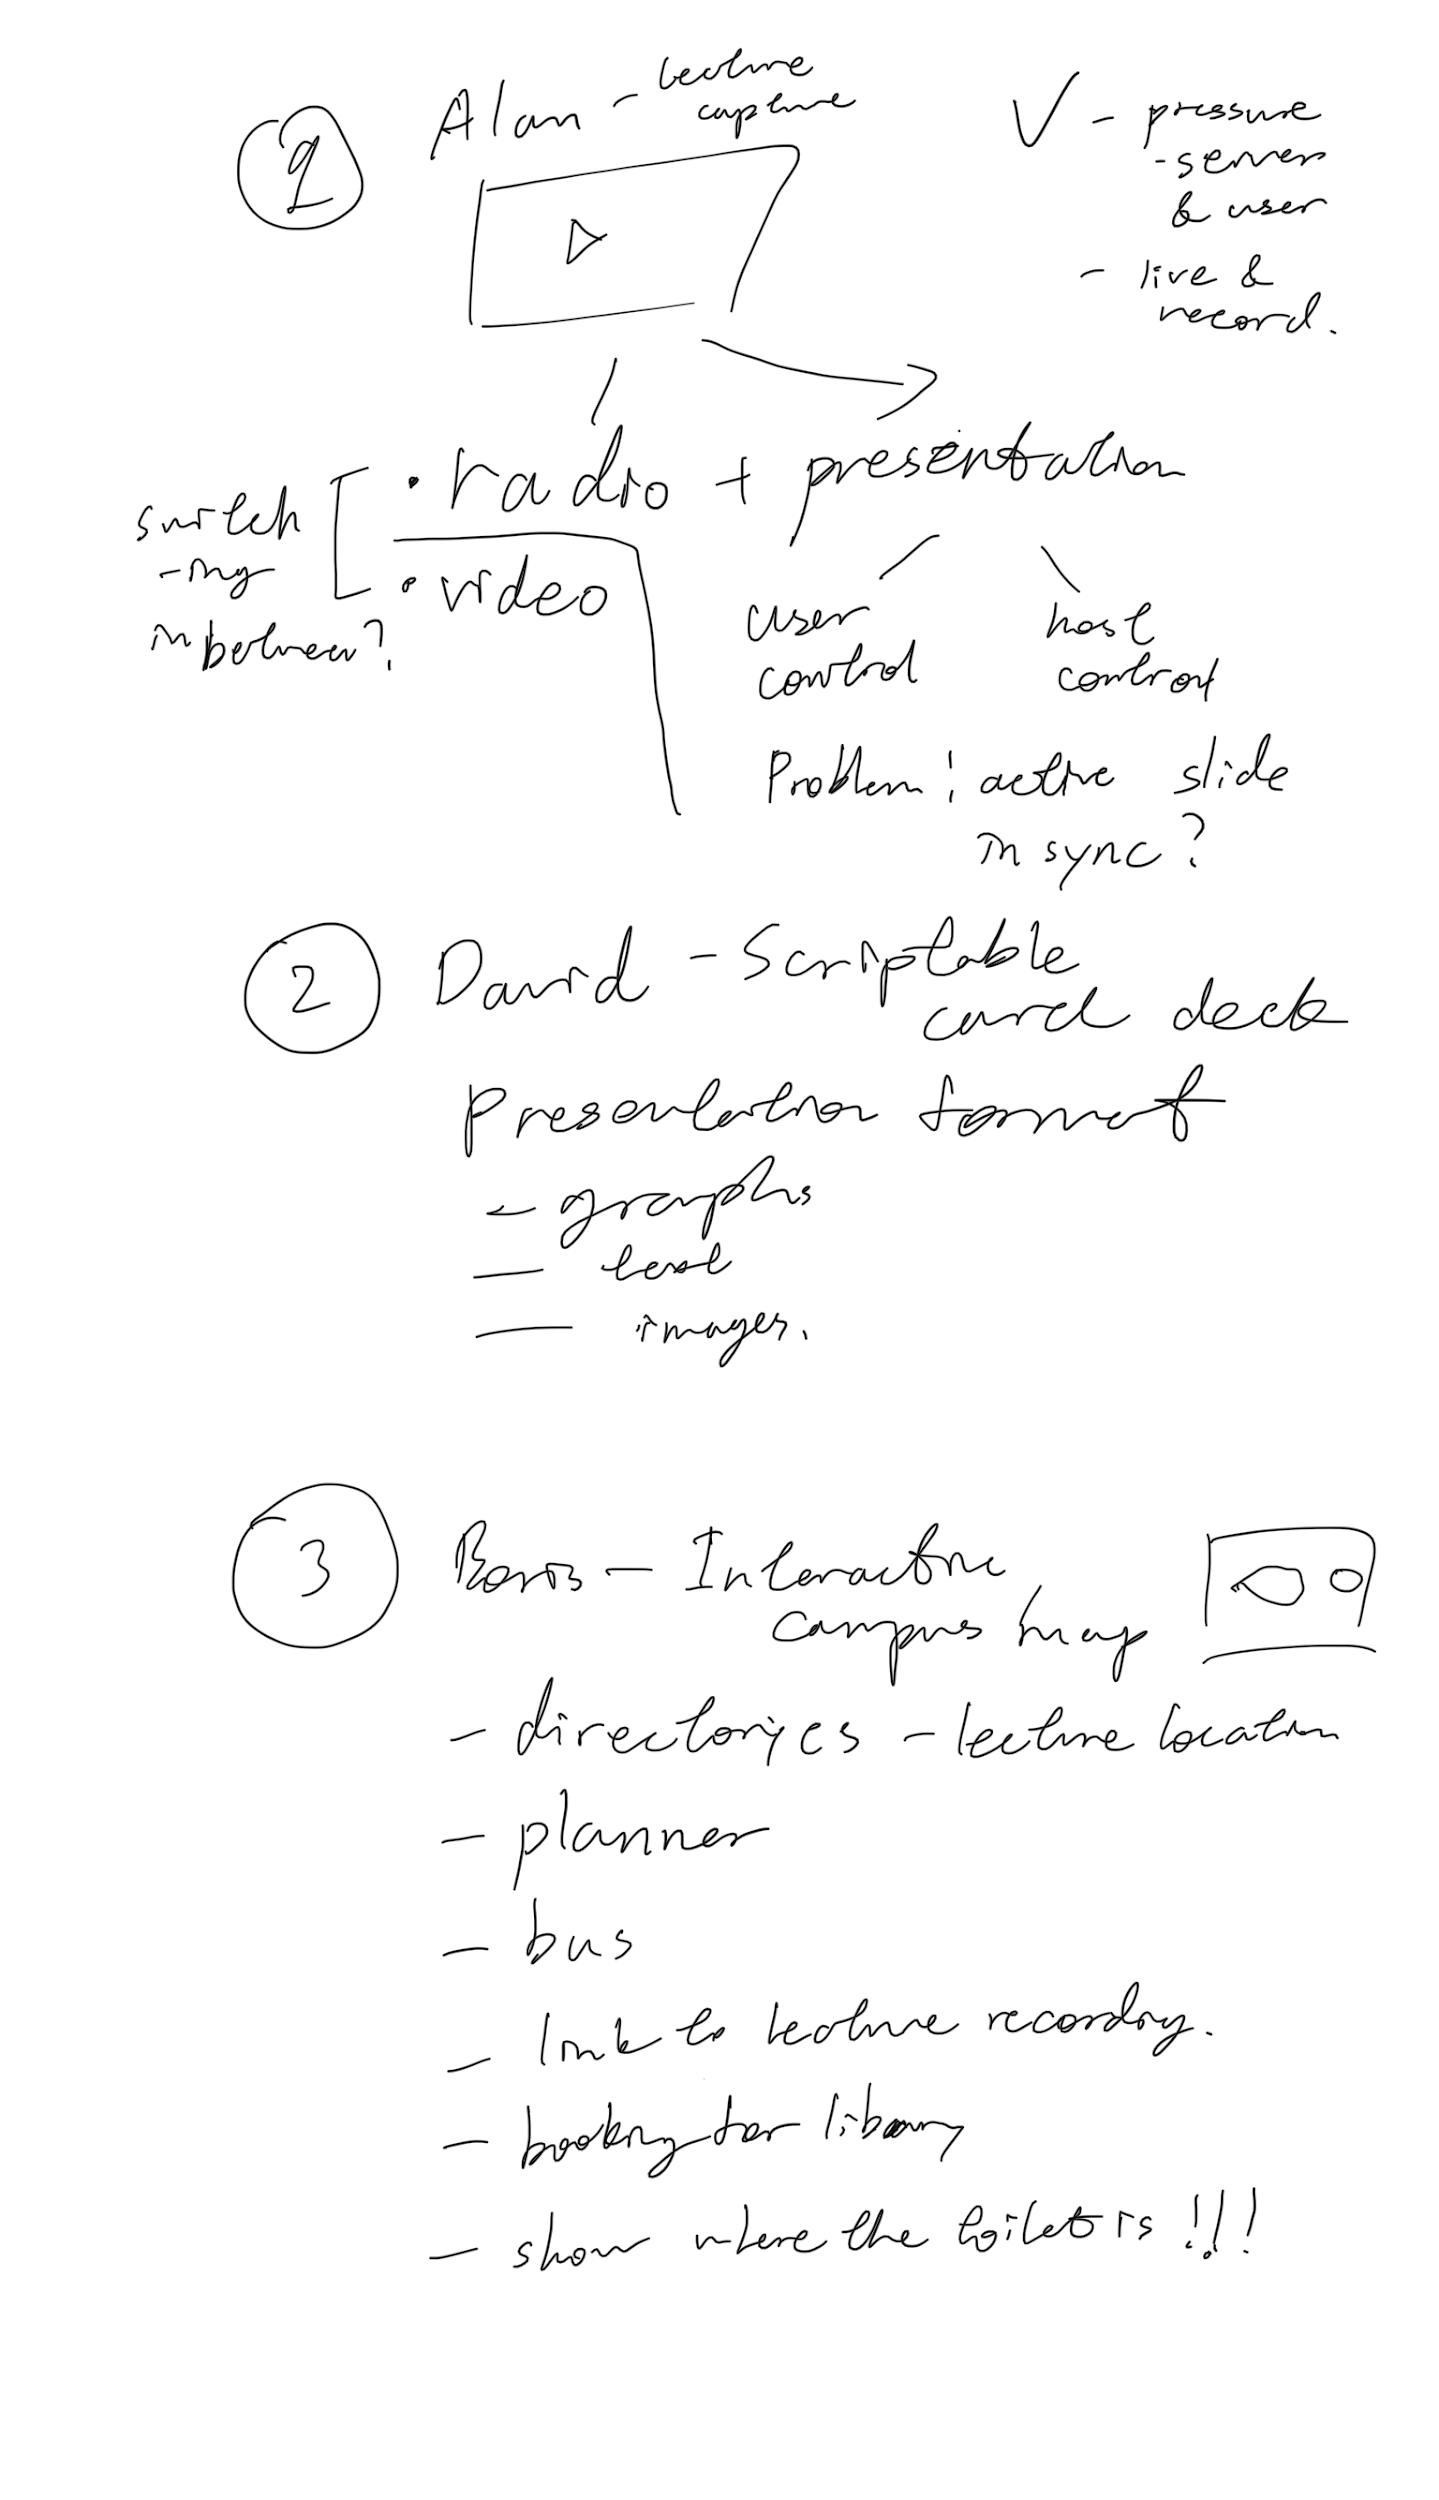 1
Alan - lecture
capture
V - pressure
- server
& user
- live &
record.
• radio + presentation
• video
switch
-ing
in between?
user
control
host
control
Problem: active slide
in sync?
2
David - Scriptable
card deck
presentation format
- graphs
- text
- images.
3
Boris - Interactive
campus map
- directories - lecture location
- planner
- bus
- link to lecture recording.
- booking for library
- show where the toilet is !!!